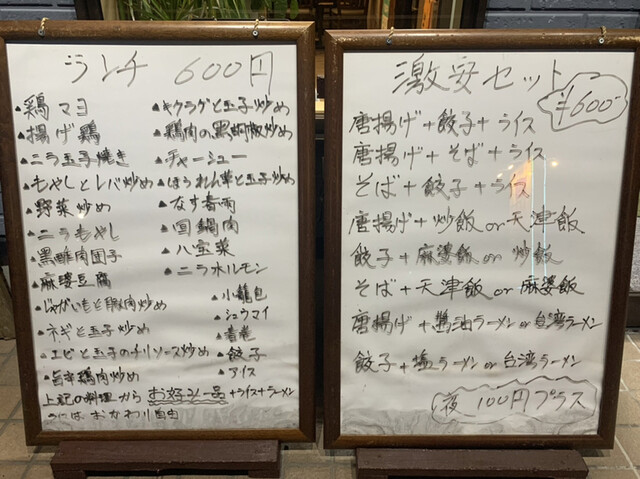 ランチ 600円
▲鶏マヨ
▲揚げ鶏
▲ニラ玉子焼き
▲もやしとレバ炒め
▲野菜炒め
▲ニラもやし
▲黒酢肉団子
▲麻婆豆腐
▲じゃがいもと豚肉炒め
▲ネギと玉子炒め
▲エビと玉子のチリソース炒め
▲旨辛鶏肉炒め
▲キクラゲと玉子炒め
▲鶏肉の黒胡椒炒め
▲チャーシュー
▲ほうれん草と玉子炒め
▲なす春雨
▲回鍋肉
▲八宝菜
▲ニラホルモン
▲小籠包
▲シュウマイ
▲春巻
▲餃子
▲アイス
上記の料理から お好み一品 +ライス+ラーメン
おかわり自由
激安セット
¥600
唐揚げ+餃子+ライス
唐揚げ+そば+ライス
そば+餃子+ライス
唐揚げ+炒飯or天津飯
餃子+麻婆飯or炒飯
そば+天津飯or麻婆飯
唐揚げ+醤油ラーメンor台湾ラーメン
餃子+塩ラーメンor台湾ラーメン
夜 100円プラス